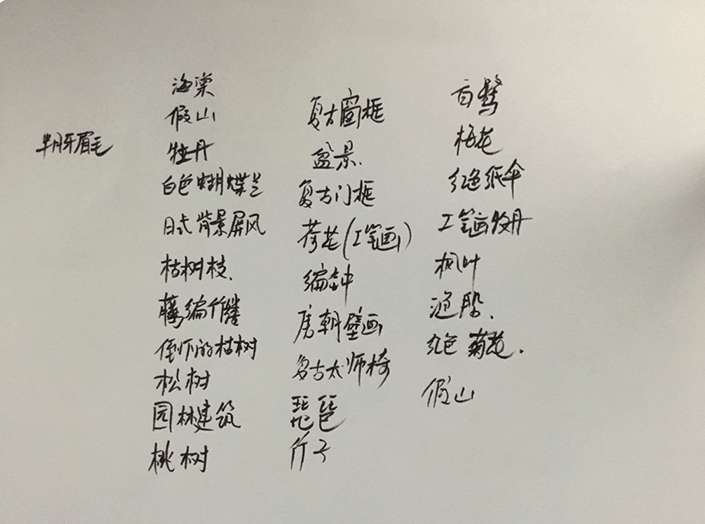 半月牙眉毛
海棠
假山
牡丹
白色蝴蝶兰
日式背景屏风
枯树枝.
藤编竹
倒下的枯树
松树
园林建筑
桃树
复古窗框
盆景.
复古门框
荷花(工笔画)
编钟
唐朝壁画
复古太师椅
琵琶
竹子
梅花
红色纸伞
工笔画牡丹
枫叶
红色菊花.
假山